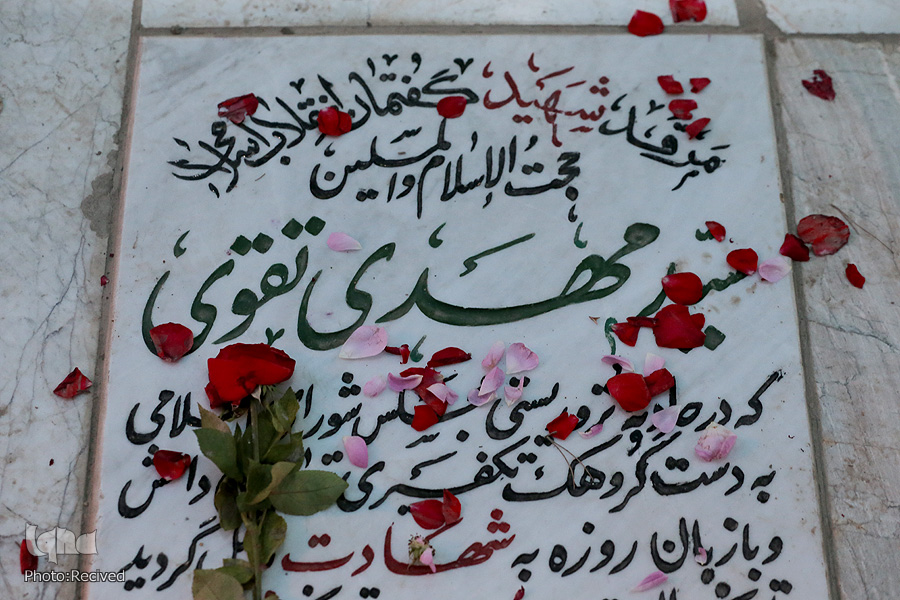 مرقد شهید گفتمان انقلاب اسلامی
حجت الاسلام والمسلین
سید مهدی تقوی
که در تروریستی مجلس شورای اسلامی
به دست گروهک تکفیری داعش
و با زبان روزه به شهادت گردید
iqna
Photo:Recived